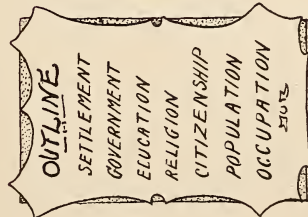 OUTLINE
SETTLEMENT
GOVERNMENT
EDUCATION
RELIGION
CITIZENSHIP
POPULATION
OCCUPATION